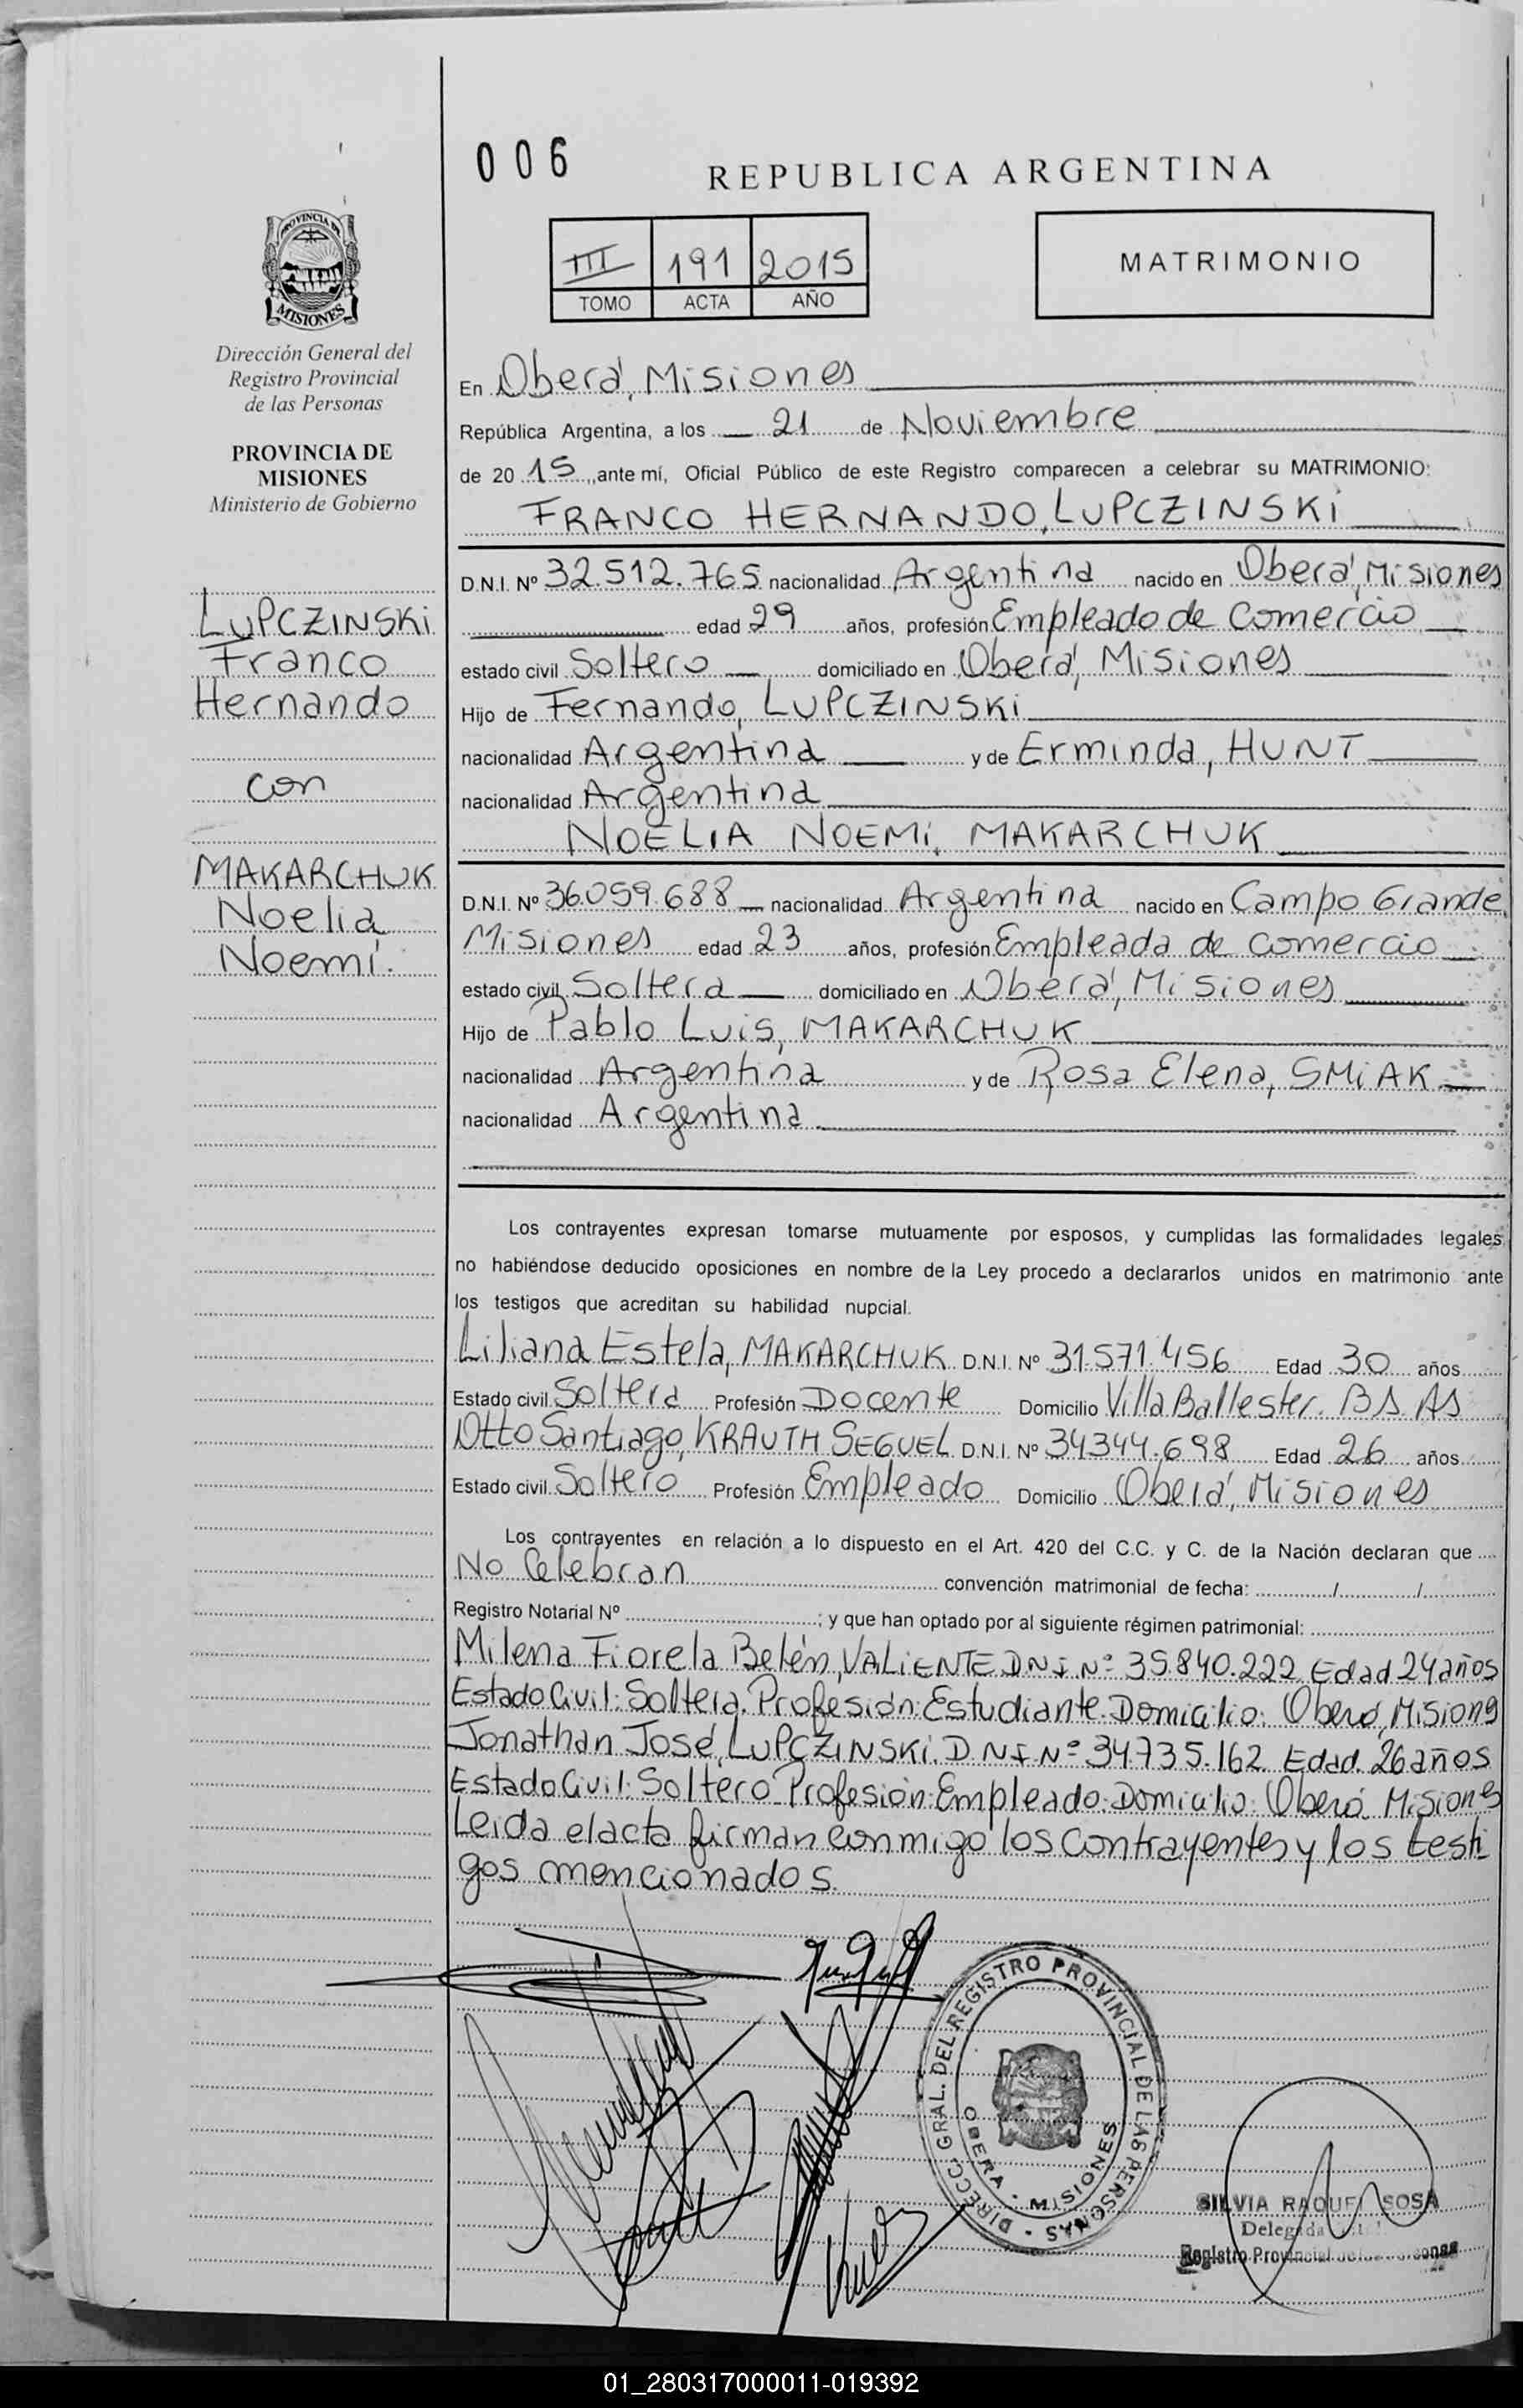 006
REPUBLICA ARGENTINA
PROVINCIA DE
MISIONES
III 191 2015
TOMO ACTA AÑO
MATRIMONIO
Dirección General del
Registro Provincial
de las Personas
PROVINCIA DE
MISIONES
Ministerio de Gobierno
LUPCZINSKi
Franco
Hernando
con
MAKARCHUK
Noelia
Noemí.
En Oberá, Misiones
República Argentina, a los 21 de Noviembre
de 20 15, ante mí, Oficial Público de este Registro comparecen a celebrar su MATRIMONIO:
FRANCO HERNANDO, LUPCZINSKi
D.N.I. Nº 32.512.765 nacionalidad Argentina nacido en Oberá, Misiones
edad 29 años, profesión Empleado de Comercio
estado civil Soltero domiciliado en Oberá, Misiones
Hijo de Fernando, LUPCZINSKi
nacionalidad Argentina y de Erminda, HUNT
nacionalidad Argentina
NOELIA NOEMí, MAKARCHUK
D.N.I. Nº 36.059.688 nacionalidad Argentina nacido en Campo Grande,
Misiones edad 23 años, profesión Empleada de comercio
estado civil Soltera domiciliado en Oberá, Misiones
Hijo de Pablo Luis, MAKARCHUK
nacionalidad Argentina y de Rosa Elena, SMiAK
nacionalidad Argentina
Los contrayentes expresan tomarse mutuamente por esposos, y cumplidas las formalidades legales,
no habiéndose deducido oposiciones en nombre de la Ley procedo a declararlos unidos en matrimonio ante
los testigos que acreditan su habilidad nupcial.
Liliana Estela, MAKARCHUK D.N.I. Nº 31.571.456 Edad 30 años
Estado civil Soltera Profesión Docente Domicilio Villa Ballester. BS AS
Otto Santiago, KRAUTH SEGUEL D.N.I. Nº 34344.698 Edad 26 años
Estado civil Soltero Profesión Empleado Domicilio Oberá, Misiones
Los contrayentes en relación a lo dispuesto en el Art. 420 del C.C. y C. de la Nación declaran que
No Celebran convención matrimonial de fecha: / /
Registro Notarial Nº ; y que han optado por al siguiente régimen patrimonial:
Milena Fiorela Belén, VALiENTE DNI Nº 35.840.222 Edad 24 años
Estado Civil: Soltera. Profesión: Estudiante. Domicilio: Oberá, Misiones
Jonathan José, LUPCZINSKi. DNI Nº 34.735.162 Edad. 26 años
Estado Civil: Soltero Profesión: Empleado. Domicilio: Oberá Misiones
Leida el acta firman conmigo los Contrayentes y los testi
gos mencionados.
DIRECC. GRAL. DEL REGISTRO PROVINCIAL DE LAS PERSONAS
OBERA - MISIONES
SILVIA RAQUEL SOSA
Delegada
Registro Provincial
01_280317000011-019392